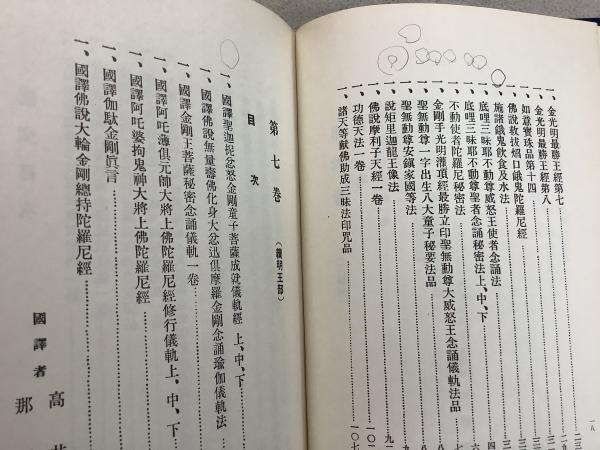 一八
一、金光明最勝王經第七
一、金光明最勝王經第八
一、如意寶珠品第十四
一、佛說救拔焰口餓鬼陀羅尼經
一、施諸餓鬼飲食及水法
一、底哩三昧耶不動尊威怒王使者念誦法
一、底哩三昧耶不動尊聖者念誦秘密法上、中、下
一、不動使者陀羅尼秘密法
一、金剛手光明灌頂經最勝立印聖無動尊大威怒王念誦儀軌法品
一、聖無動尊一字出生八大童子秘要法品
一、聖無動尊安鎮家國等法
一、說矩里迦龍王像法
一、佛說摩利子天經一卷
一、功德天法一卷
一、諸天等獻佛助成三昧法印咒品
第七卷（續明王部）
目次
一、國譯聖迦抳忿怒金剛童子菩薩成就儀軌經 上、中、下
一、國譯佛說無量壽佛化身大忿迅俱摩羅金剛念誦瑜伽儀軌法
一、國譯金剛王菩薩秘密念誦儀軌一卷
一、國譯阿吒薄俱元帥大將上佛陀羅尼經修行儀軌上、中、下
一、國譯阿吒婆拘鬼神大將上佛陀羅尼經
一、國譯伽馱金剛眞言
一、國譯佛說大輪金剛總持陀羅尼經
國譯者 高
那